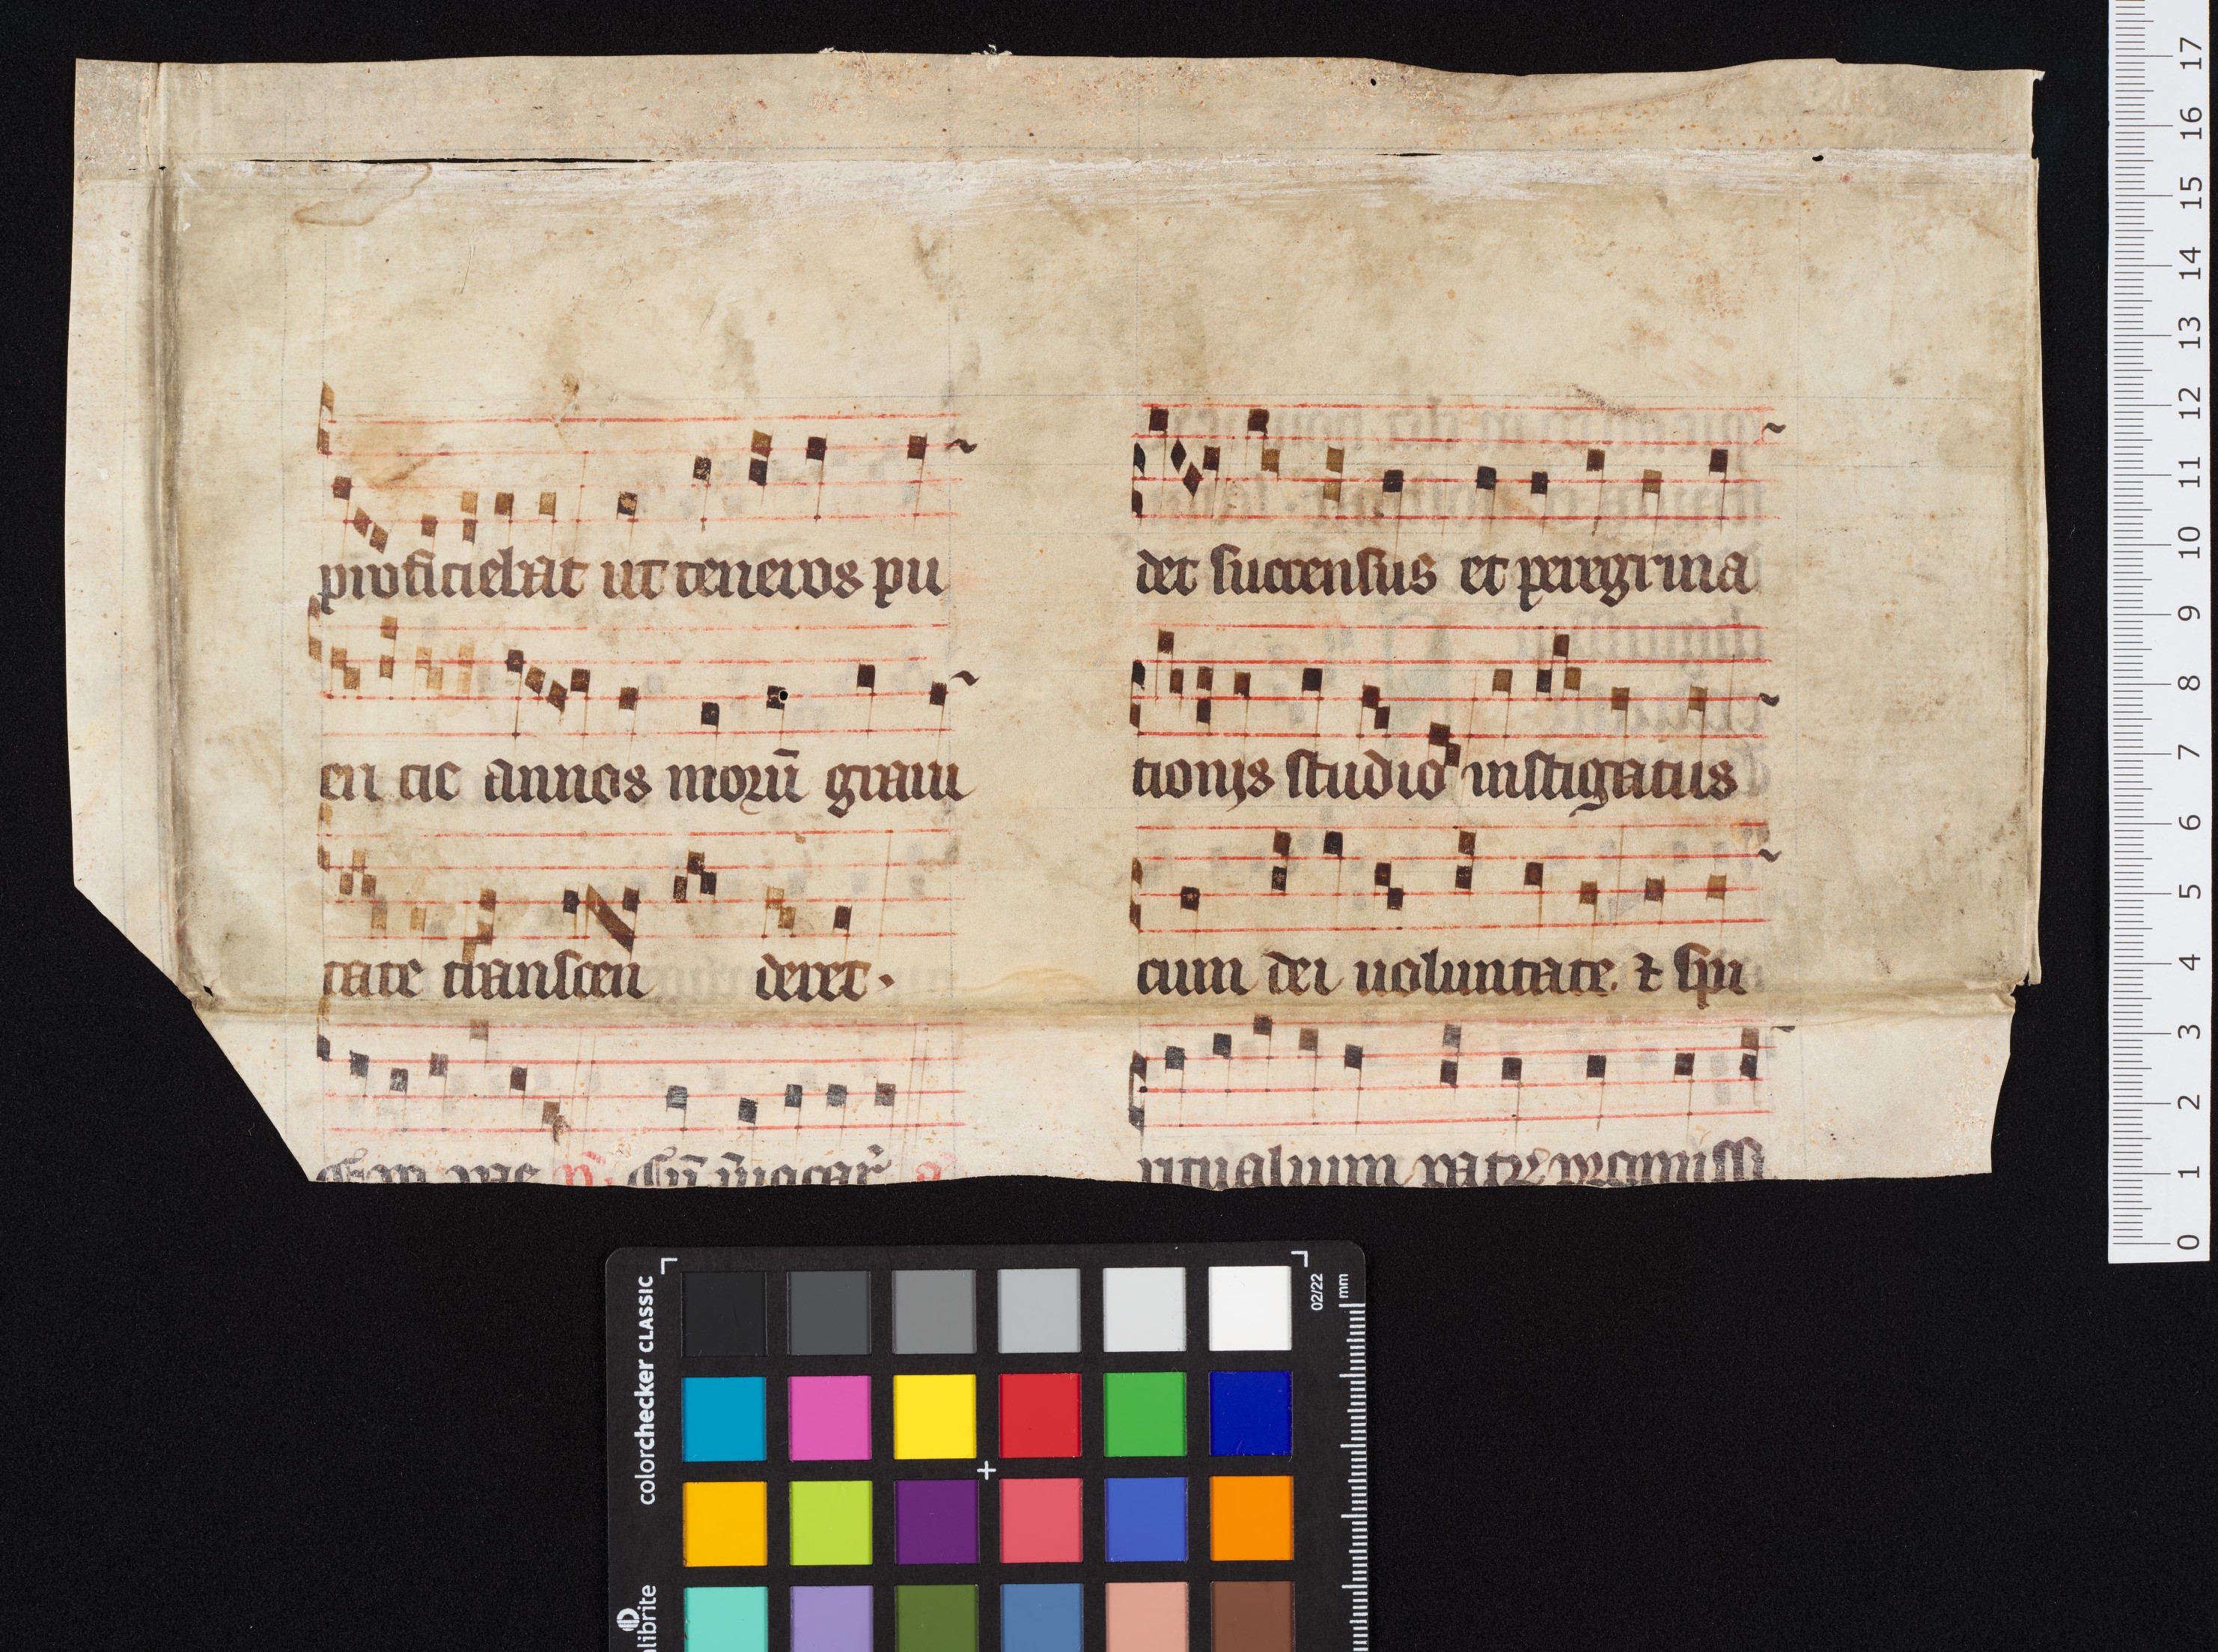 proficiebat ut teneros pu
eri⁊ic annos morū graui
tate transcen deret.
det succensus et peregrina
tionis studio instigatus
cum dei uoluntate. ⁊ spi
ritualium patrꝝ promissi
17
16
15
14
13
12
11
10
9
8
7
6
5
4
3
2
1
0
colorchecker CLASSIC
02/22
mm